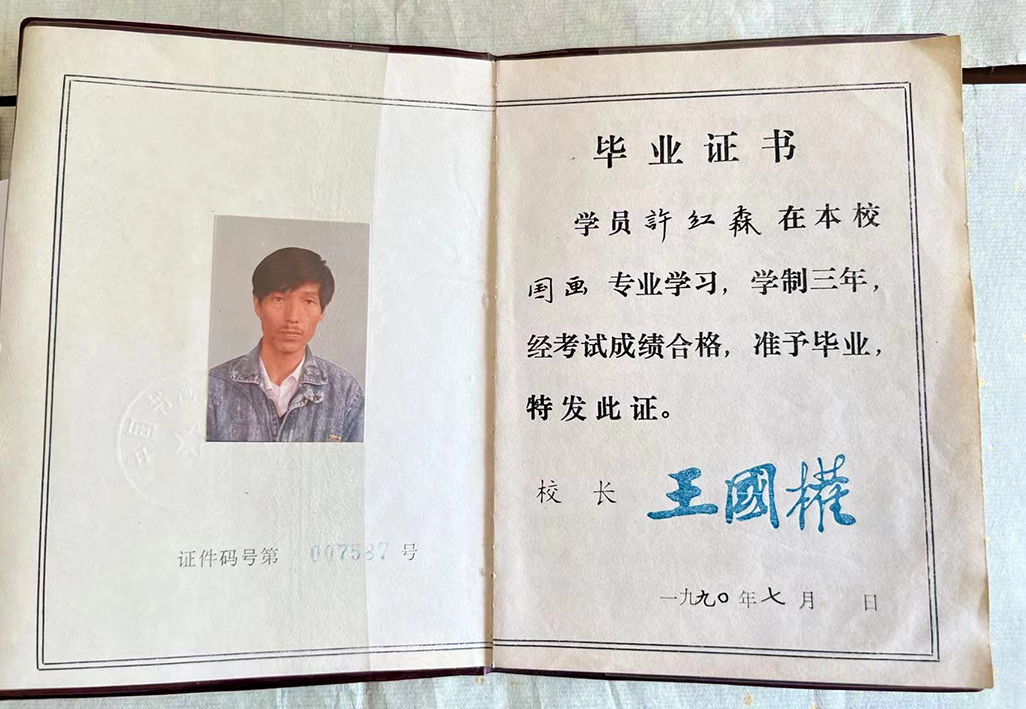 证件码号第 007587 号
毕业证书
学员許红森在本校
国画 专业学习，学制三年，
经考试成绩合格，准予毕业，
特发此证。
校 长 王國權
一九九〇年七月 日